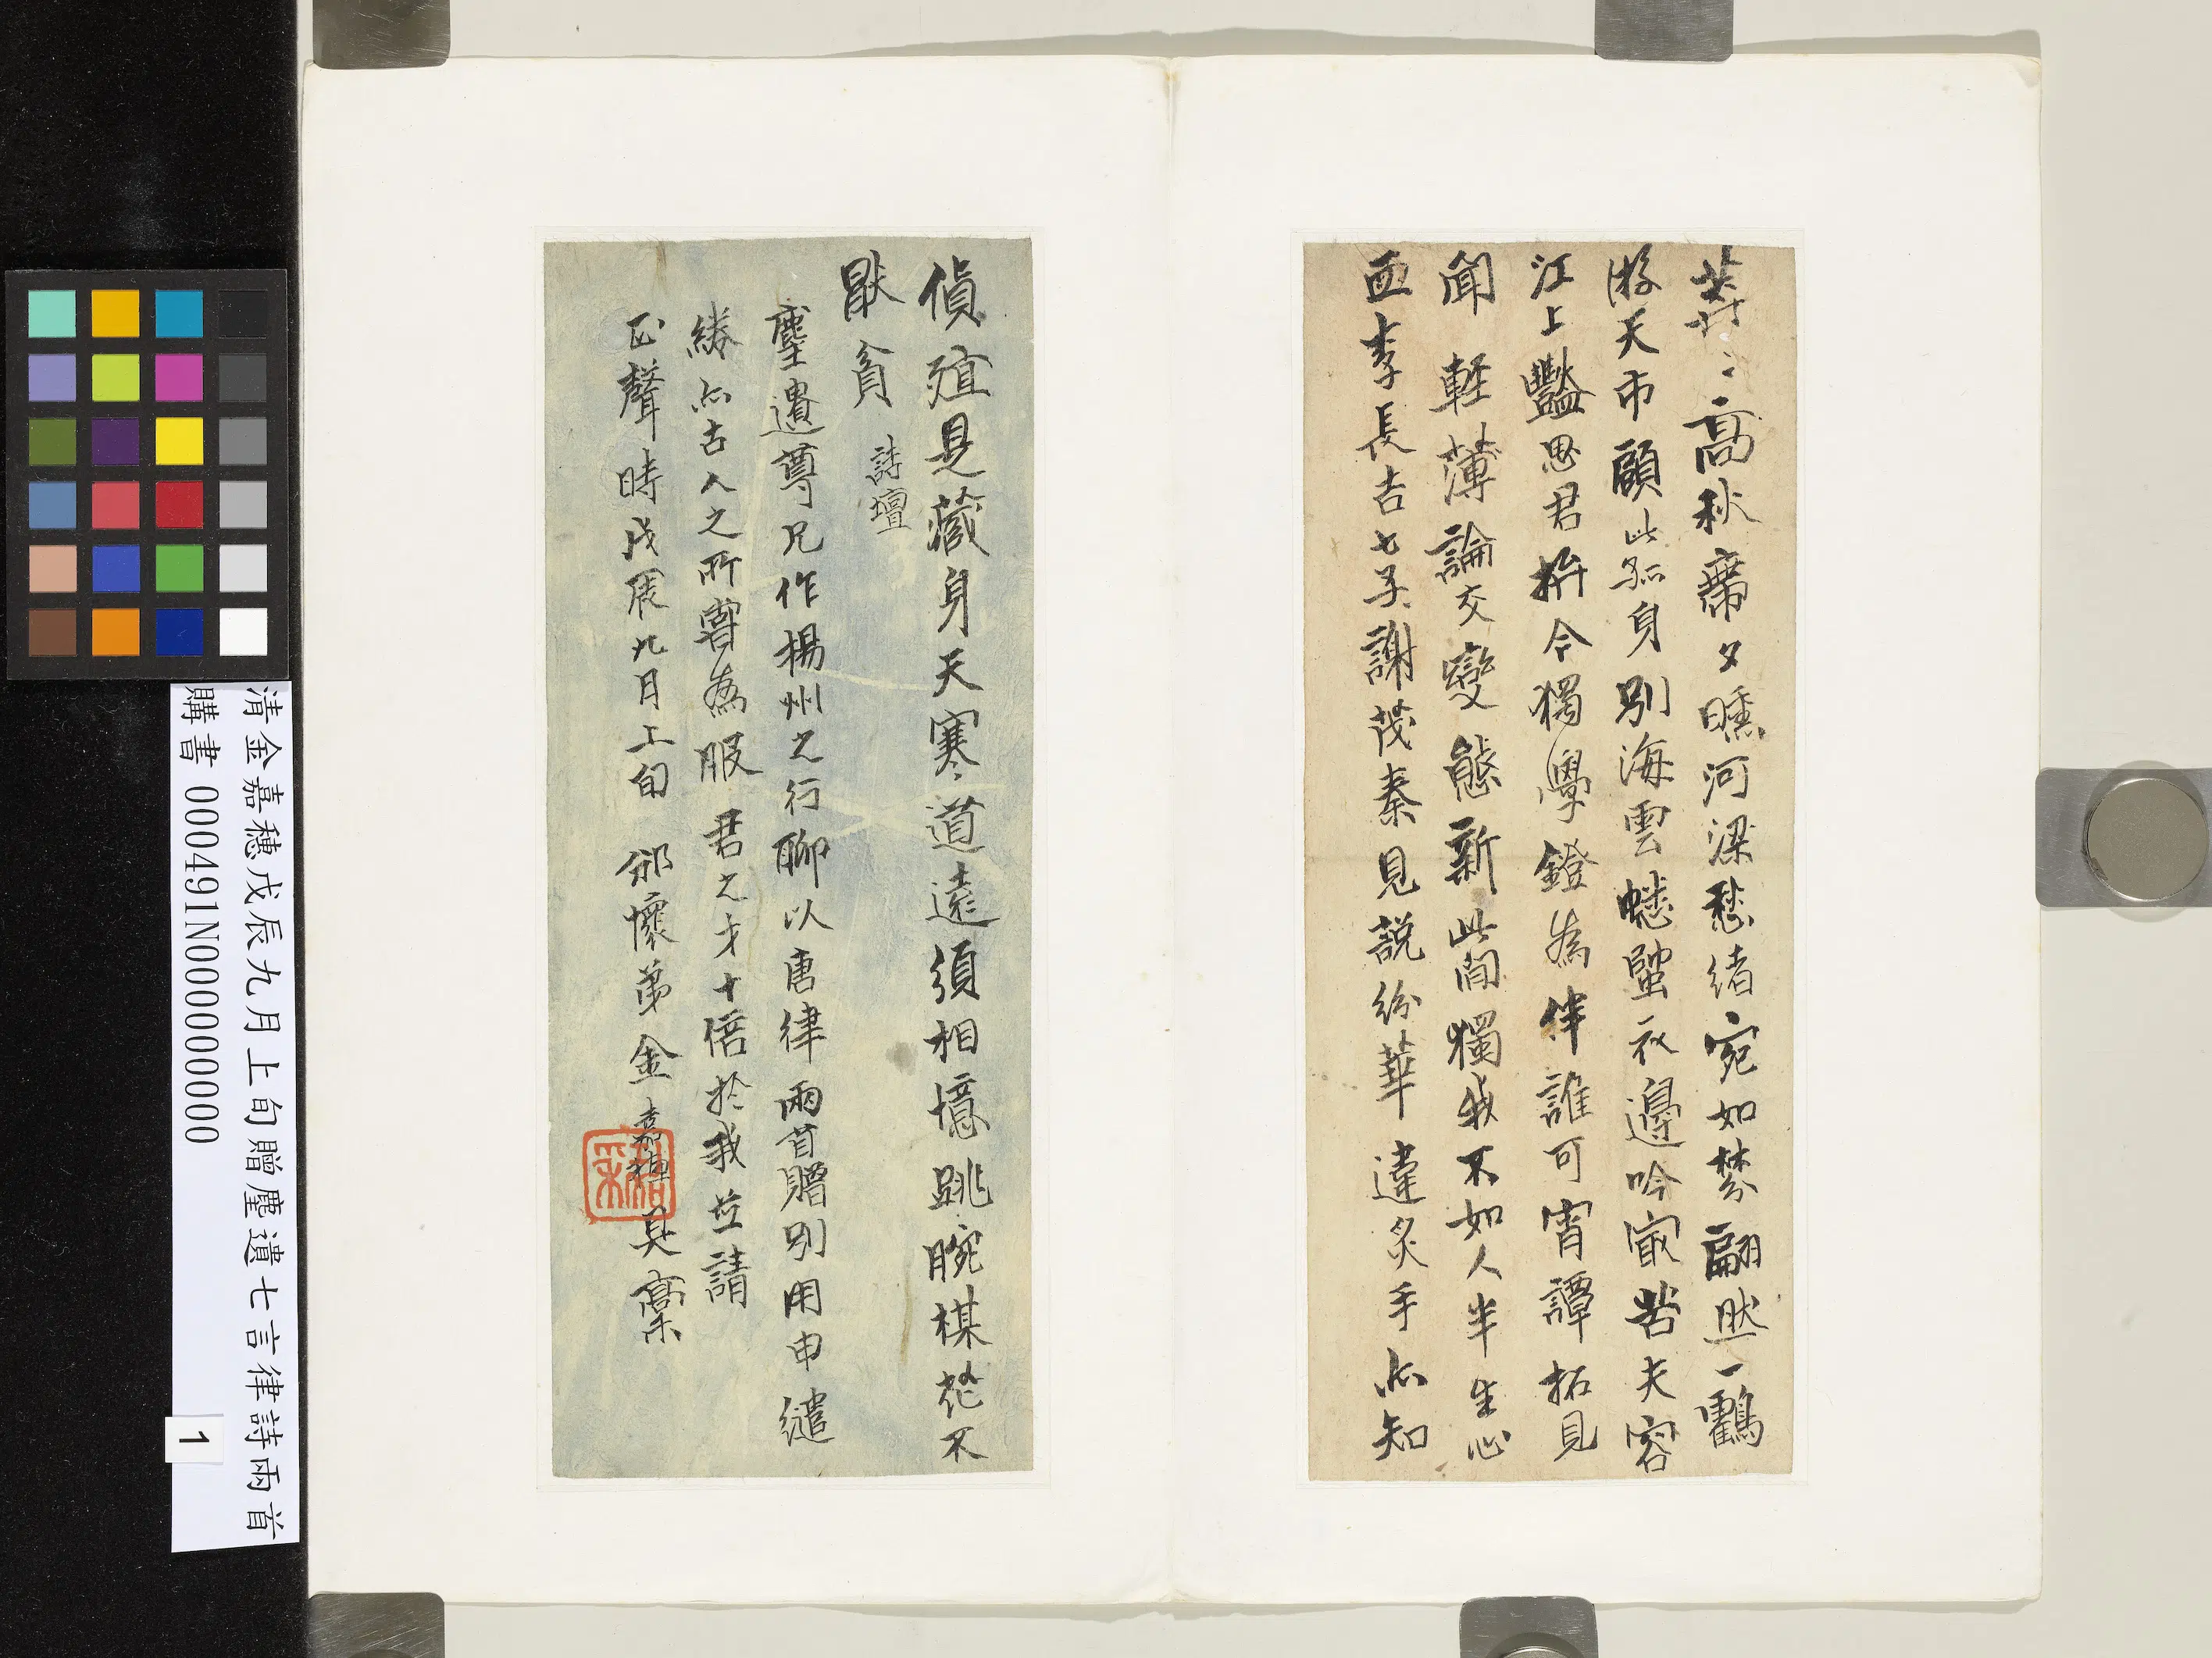 莽〻高秋席夕曛河梁愁緒宛如棼翩然一鸛
游天市顧此孤身別海雲蟋蟀衣邊吟寂苦夫容
江上豔思君拚今獨學鐙為伴誰可宵譚拓見
聞　輕薄論交變態新此間獨我不如人半生心
血李長吉七子謝茂秦見說紛華違炙手亦知
偵殖是藏身天寒道遠須相憶跳腕棋花不
猒貧　詩壇
塵遺尊兄作楊州之行聊以唐律兩首贈別用申繾
綣亦古人之所嘗為服君之才十倍於我並請
正聲時戊辰九月上旬　邠懷弟金嘉穗具稾
清金嘉穗戊辰九月上旬贈塵遺七言律詩兩首
購書 000491N000000000
1